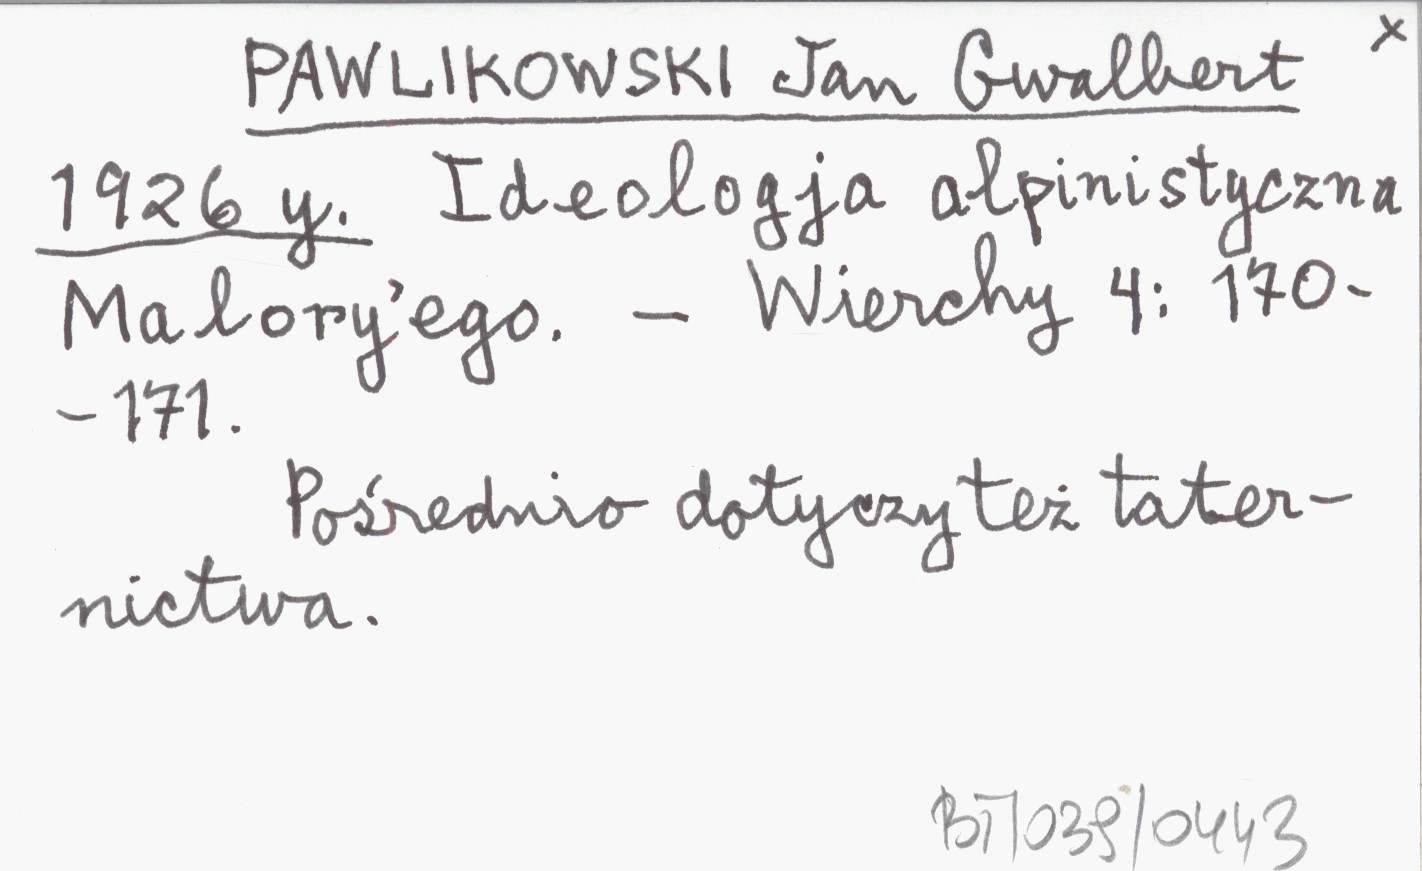 x
PAWLIKOWSKI Jan Gwalbert
1926 y. Ideologja alpinistyczna
Malory'ego. – Wierchy 4: 170-
-171.
Pośrednio dotyczy też tater-
nictwa.
BT/039/0443